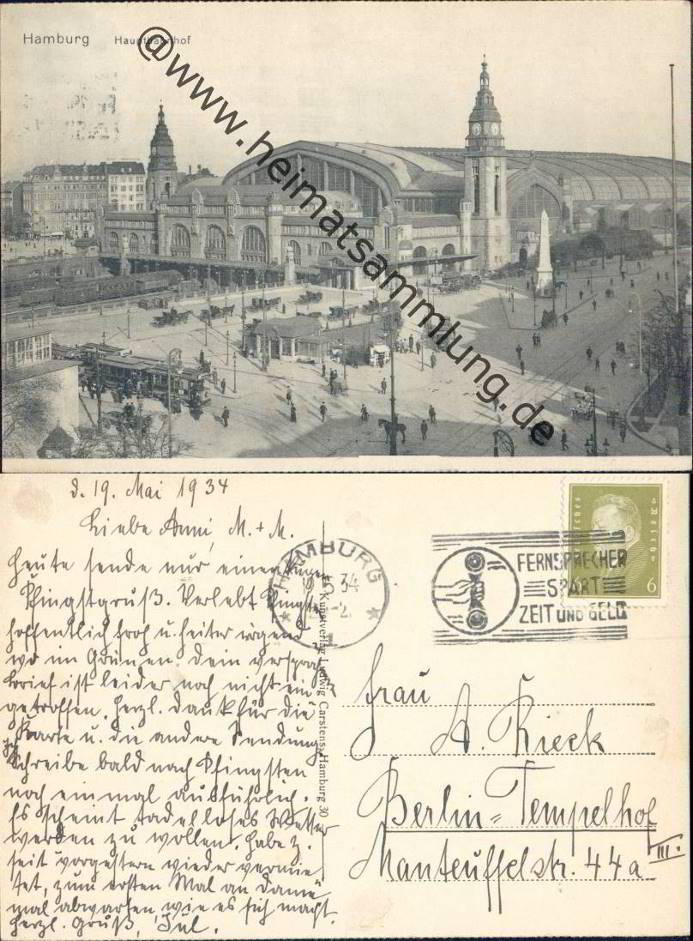 Hamburg Hauptbahnhof
@www.heimatsammlung.de
d. 19. Mai 1934
Liebe Anni, M. + M.
Heute sende nur einen kurzen
Pfingstgruß. Verlebt Pfingsten
hoffentlich froh u. heiter irgend
wo im Grünen. Dein versproch.
brief ist leider noch nicht ein
getroffen. Herzl. Dank für die
Karte u. die andere Sendung.
Ich schreibe bald nach Pfingsten
noch einmal ausführlich.
Es scheint tadelloses Wetter
werden zu wollen. Habe 2.
seit vorgestern wieder vermie
tet, zum ersten Mal an Dame
mal abwarten wie es sich macht.
Herzl. Gruß, Jul.
Kunstverlag Ludwig Carstens, Hamburg 30
HAMBURG
5.34
FERNSPRECHER
SPART
ZEIT UND GELD
6
Frau
A. Rieck
Berlin=Tempelhof
Manteuffelstr. 44a III.